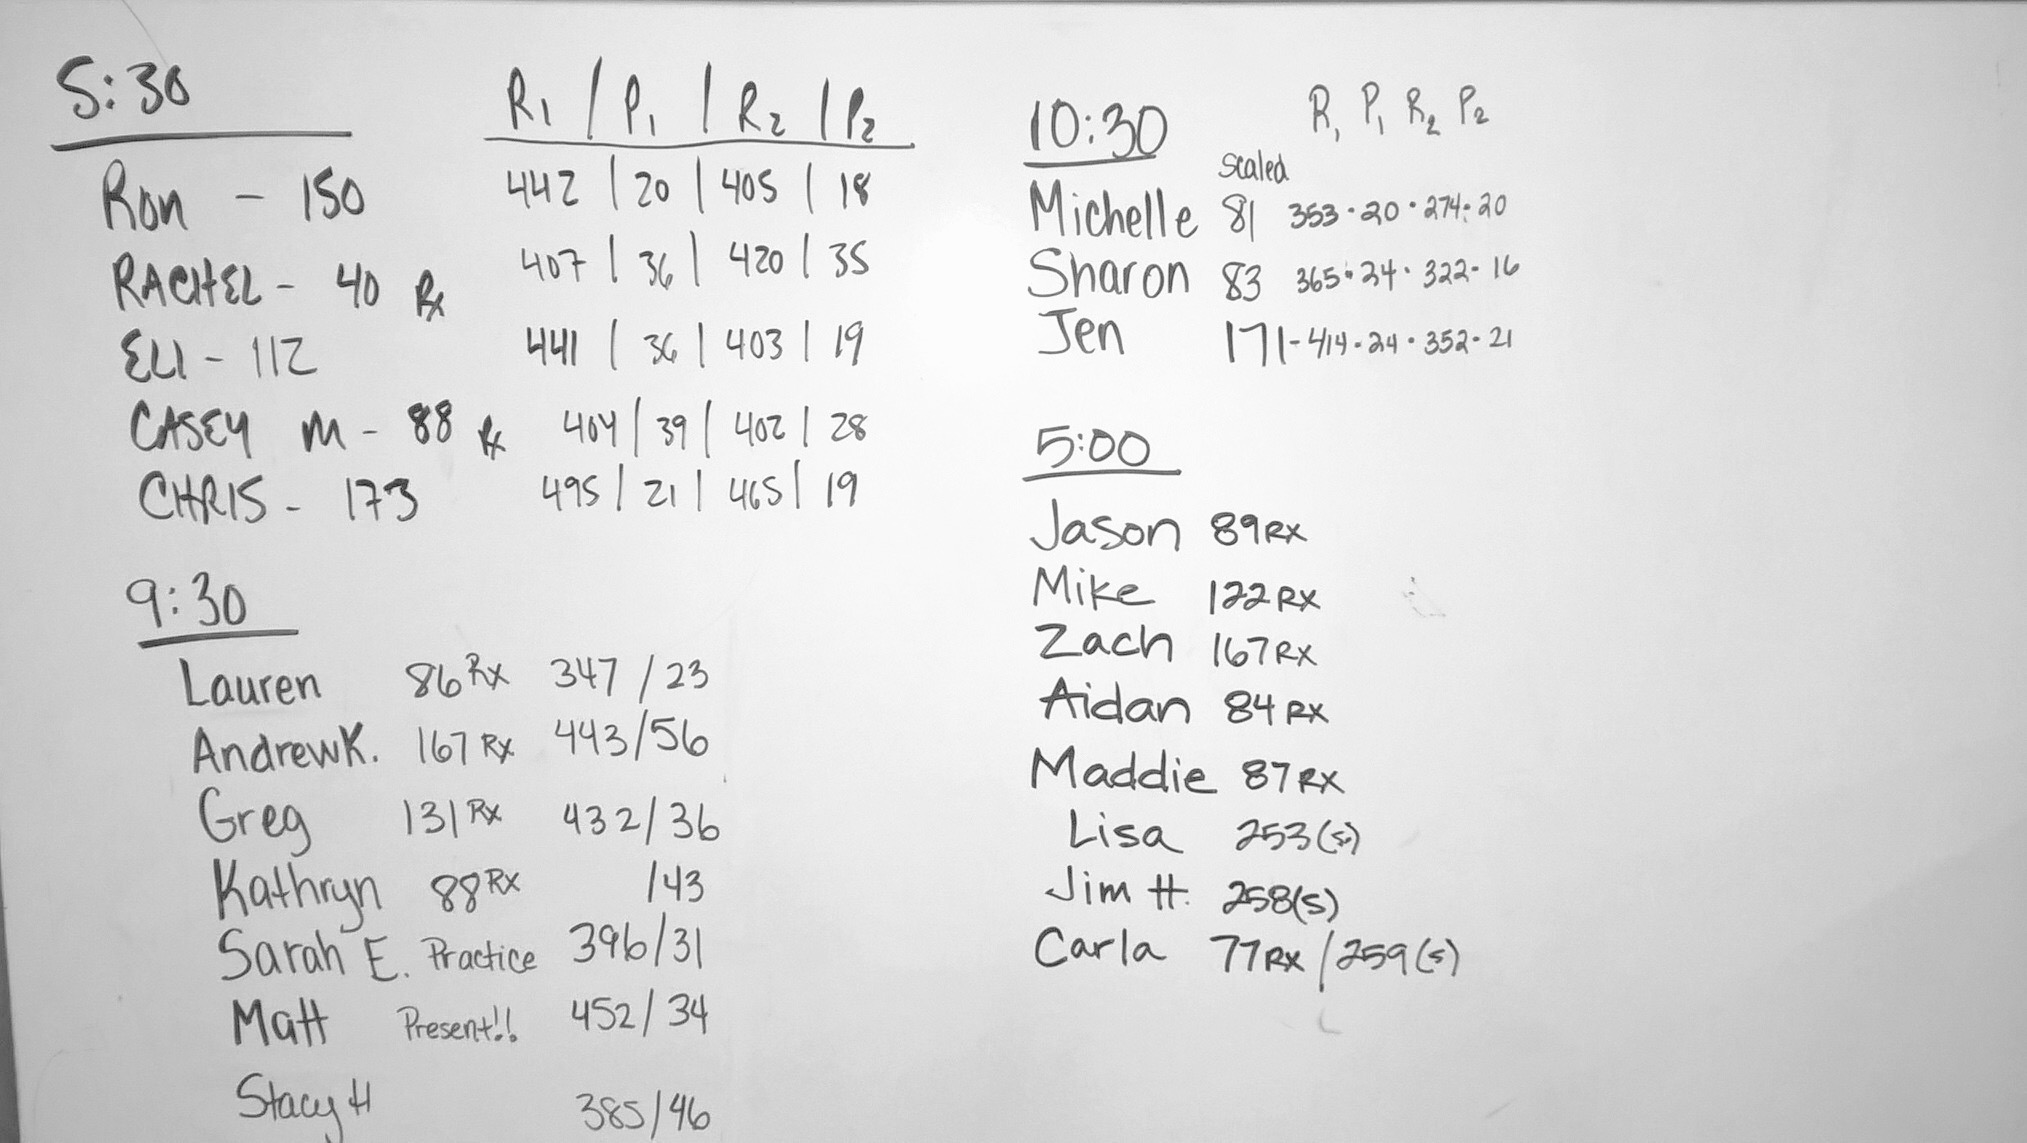 5:30
R1 / P1 / R2 / P2
Ron - 150 442 | 20 | 405 | 18
RACHEL - 40 Rx 407 | 36 | 420 | 35
ELI - 112 441 | 36 | 403 | 19
CASEY M - 88 Rx 404 | 39 | 402 | 28
CHRIS - 173 495 | 21 | 465 | 19
9:30
Lauren 86 Rx 347 / 23
Andrew K. 167 Rx 443/56
Greg 131 Rx 432/36
Kathryn 88 Rx /43
Sarah E. Practice 396/31
Matt Present!! 452/34
Stacy H 385/46
10:30
R1 P1 R2 P2
scaled
Michelle 81 353 · 20 · 274 · 20
Sharon 83 365 · 24 · 322 - 16
Jen 171 - 414 - 24 · 352 - 21
5:00
Jason 89 RX
Mike 122 RX
Zach 167 RX
Aidan 84 RX
Maddie 87 RX
Lisa 253(s)
Jim H. 258(s)
Carla 77 RX / 259(s)